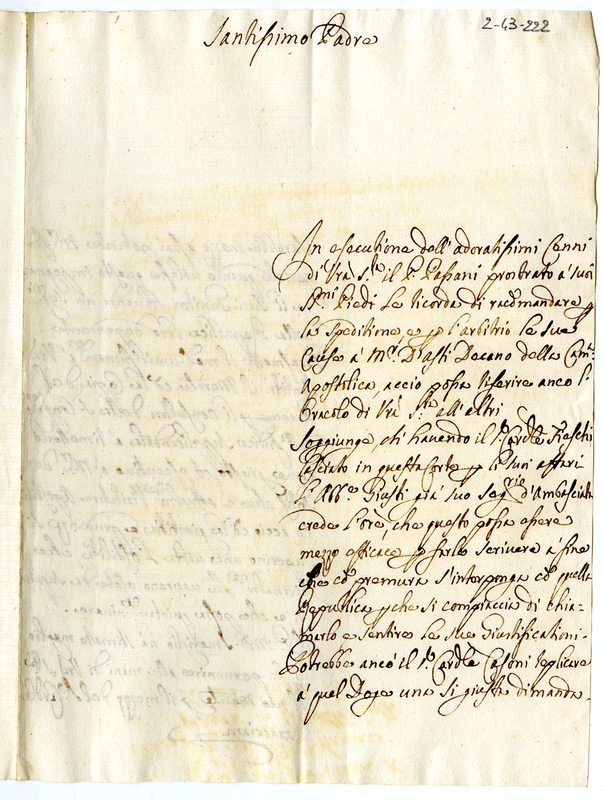 2-43-222
Santissimo Padre
In esecutione dell'adoratissimi Cenni
di Vra S.tà il P. Passani prostrato à suoi
S.mi Piedi le ricorda di racomandare
la speditione, e p l'arbitrio le sue
Cause à M.r D'asti Decano della Cam.
Apostolica, acciò possa riferire anco l'
Oracolo di Vra S.tà all'altri
Soggiunge, ch'havendo il S. Card.le Fieschi
lasciato in questa Corte p li suoi affari
l'Abb.e Giusti già suo Seg.rio d'Ambasciata
crede l'Ore, che questo possa essere
mezzo efficace p farlo scrivere à fine
che cõ premura s'interponga cõ quella
Republica, che si compiaccia di chia-
marlo e sentire le sue Giustificationi.
Potrebbe anco il S. Card.le Casoni replicare
à quel Doge una si giusta dimanda.